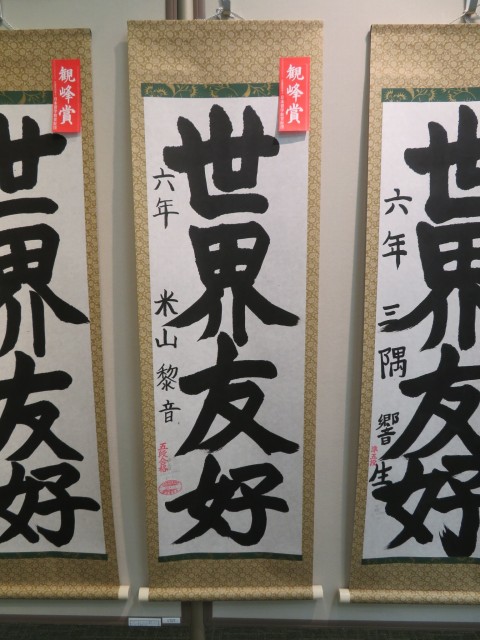 世界友好
観峰賞
世界友好
六年 米山黎音
五段合格
観峰賞
世界友好
六年 三隅響生
準五段